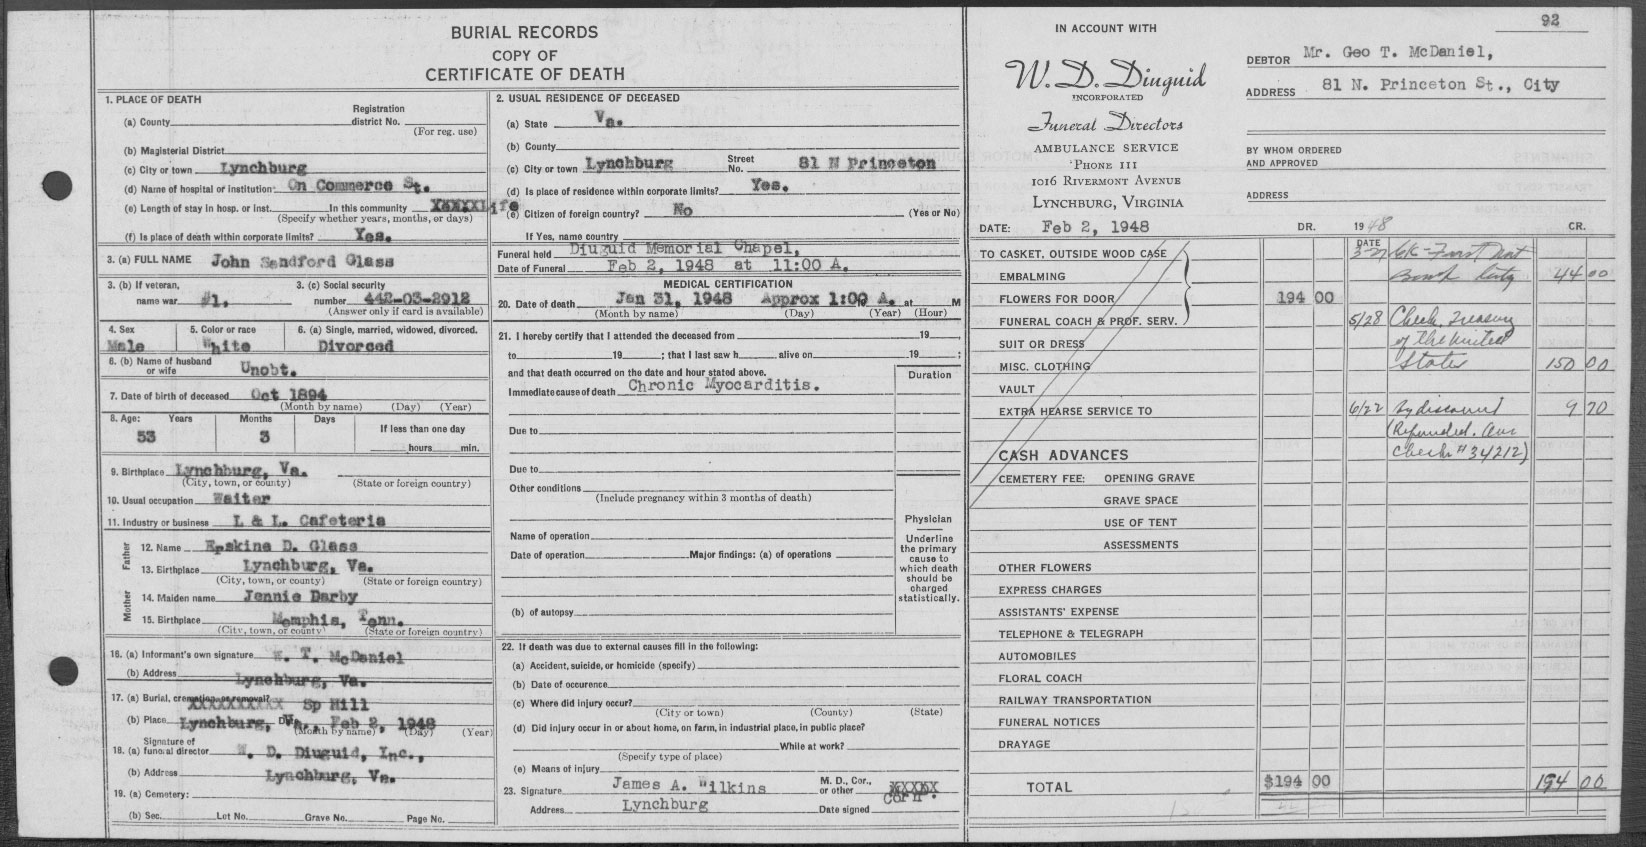 BURIAL RECORDS
COPY OF
CERTIFICATE OF DEATH
1. PLACE OF DEATH
(a) County
Registration district No.
(For reg. use)
(b) Magisterial District
(c) City or town Lynchburg
(d) Name of hospital or institution On Commerce St.
(e) Length of stay in hosp. or inst. In this community XXXXX Life
(Specify whether years, months, or days)
(f) Is place of death within corporate limits? Yes.
3. (a) FULL NAME John Sandford Glass
3. (b) If veteran, name war #1.
3. (c) Social security number 442-03-2912
(Answer only if card is available)
4. Sex Male
5. Color or race White
6. (a) Single, married, widowed, divorced. Divorced
6. (b) Name of husband or wife Unobt.
7. Date of birth of deceased Oct 1894
(Month by name) (Day) (Year)
8. Age: Years 53 Months 3 Days
If less than one day
hours min.
9. Birthplace Lynchburg, Va.
(City, town, or county) (State or foreign country)
10. Usual occupation Waiter
11. Industry or business L & L. Cafeteria
Father
12. Name Erskine D. Glass
13. Birthplace Lynchburg, Va.
(City, town, or county) (State or foreign country)
Mother
14. Maiden name Jennie Darby
15. Birthplace Memphis, Tenn.
(City, town, or county) (State or foreign country)
16. (a) Informant's own signature W. T. McDaniel
(b) Address Lynchburg, Va.
17. (a) Burial, cremation or removal? XXXXXXXXXX Sp Hill
(b) Place Lynchburg, Va., Feb 2, 1948
(Month by name) (Day) (Year)
18. (a) Signature of funeral director W. D. Diuguid, Inc.,
(b) Address Lynchburg, Va.
19. (a) Cemetery:
(b) Sec. Lot No. Grave No. Page No.
2. USUAL RESIDENCE OF DECEASED
(a) State Va.
(b) County
(c) City or town Lynchburg Street No. 81 N Princeton
(d) Is place of residence within corporate limits? Yes.
(e) Citizen of foreign country? No (Yes or No)
If Yes, name country
Funeral held Diuguid Memorial Chapel,
Date of Funeral Feb 2, 1948 at 11:00 A.
MEDICAL CERTIFICATION
20. Date of death Jan 31, 1948 Approx 1:00 A. at M
(Month by name) (Day) (Year) (Hour)
21. I hereby certify that I attended the deceased from 19
to 19 ; that I last saw h alive on 19 ;
and that death occurred on the date and hour stated above.
Duration
Immediate cause of death Chronic Myocarditis.
Due to
Due to
Other conditions
(Include pregnancy within 3 months of death)
Name of operation
Date of operation Major findings: (a) of operations
(b) of autopsy
Physician
Underline the primary cause to which death should be charged statistically.
22. If death was due to external causes fill in the following:
(a) Accident, suicide, or homicide (specify)
(b) Date of occurence
(c) Where did injury occur?
(City or town) (County) (State)
(d) Did injury occur in or about home, on farm, in industrial place, in public place?
While at work?
(Specify type of place)
(e) Means of injury
23. Signature James A. Wilkins M. D., Cor., or other XXXXX Cor'n.
Address Lynchburg Date signed
92
IN ACCOUNT WITH
W. D. Diuguid
INCORPORATED
Funeral Directors
AMBULANCE SERVICE
'PHONE 111
1016 RIVERMONT AVENUE
LYNCHBURG, VIRGINIA
DEBTOR Mr. Geo T. McDaniel,
ADDRESS 81 N. Princeton St., City
BY WHOM ORDERED AND APPROVED
ADDRESS
DATE: Feb 2, 1948 DR. 1948 CR.
DATE
TO CASKET, OUTSIDE WOOD CASE
EMBALMING
FLOWERS FOR DOOR 194 00
FUNERAL COACH & PROF. SERV.
SUIT OR DRESS
MISC. CLOTHING
VAULT
EXTRA HEARSE SERVICE TO
CASH ADVANCES
CEMETERY FEE: OPENING GRAVE
GRAVE SPACE
USE OF TENT
ASSESSMENTS
OTHER FLOWERS
EXPRESS CHARGES
ASSISTANTS' EXPENSE
TELEPHONE & TELEGRAPH
AUTOMOBILES
FLORAL COACH
RAILWAY TRANSPORTATION
FUNERAL NOTICES
DRAYAGE
TOTAL $194 00 194 00
Ck - First Nat
44 00
5/28 Check, Treasury
of the United
States 150 00
6/22 By discount 9 70
(Refunded. Our
check #34212)